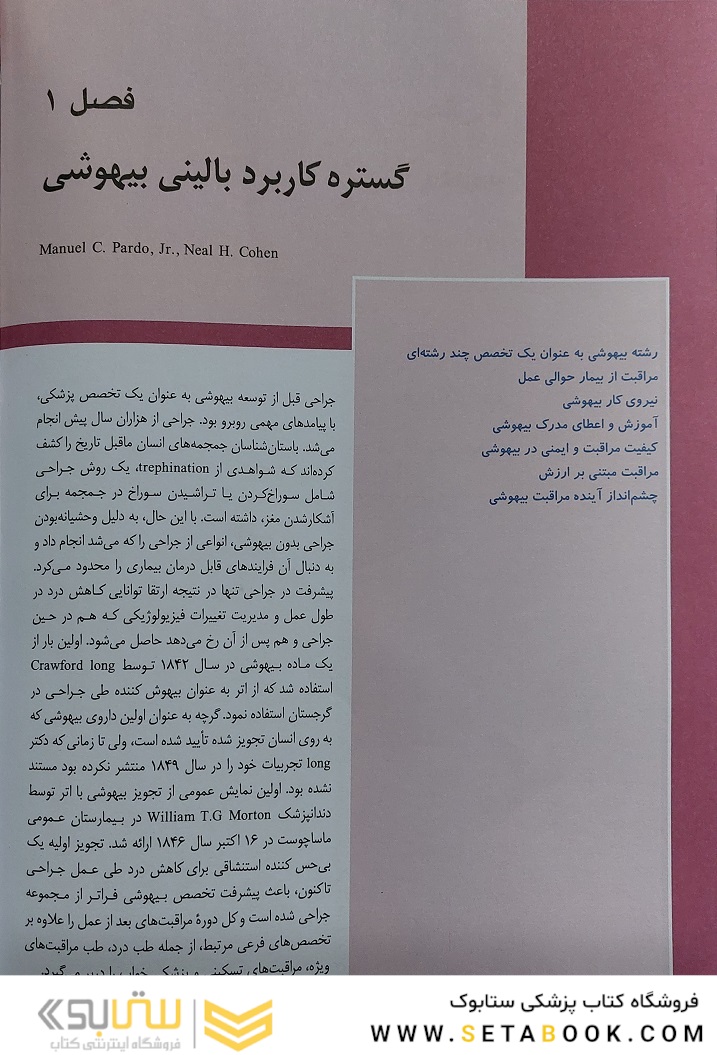 فصل ۱
گستره کاربرد بالینی بیهوشی
Manuel C. Pardo, Jr., Neal H. Cohen
رشته بیهوشی به عنوان یک تخصص چند رشته‌ای
مراقبت از بیمار حوالی عمل
نیروی کار بیهوشی
آموزش و اعطای مدرک بیهوشی
کیفیت مراقبت و ایمنی در بیهوشی
مراقبت مبتنی بر ارزش
چشم‌انداز آینده مراقبت بیهوشی
جراحی قبل از توسعه بیهوشی به عنوان یک تخصص پزشکی،
با پیامدهای مهمی روبرو بود. جراحی از هزاران سال پیش انجام
می‌شد. باستان‌شناسان جمجمه‌های انسان ماقبل تاریخ را کشف
کرده‌اند که شواهدی از trephination، یک روش جراحی
شامل سوراخ‌کردن یا تراشیدن سوراخ در جمجمه برای
آشکارشدن مغز، داشته است. با این حال، به دلیل وحشیانه‌بودن
جراحی بدون بیهوشی، انواعی از جراحی را که می‌شد انجام داد و
به دنبال آن فرایندهای قابل درمان بیماری را محدود می‌کرد.
پیشرفت در جراحی تنها در نتیجه ارتقا توانایی کاهش درد در
طول عمل و مدیریت تغییرات فیزیولوژیکی که هم در حین
جراحی و هم پس از آن رخ می‌دهد حاصل می‌شود. اولین بار از
یک ماده بیهوشی در سال ۱۸۴۲ توسط Crawford long
استفاده شد که از اتر به عنوان بیهوش کننده طی جراحی در
گرجستان استفاده نمود. گرچه به عنوان اولین داروی بیهوشی که
به روی انسان تجویز شده تأیید شده است، ولی تا زمانی که دکتر
long تجربیات خود را در سال ۱۸۴۹ منتشر نکرده بود مستند
نشده بود. اولین نمایش عمومی از تجویز بیهوشی با اتر توسط
دندانپزشک William T.G Morton در بیمارستان عمومی
ماساچوست در ۱۶ اکتبر سال ۱۸۴۶ ارائه شد. تجویز اولیه یک
بی‌حس کننده استنشاقی برای کاهش درد طی عمل جراحی
تاکنون، باعث پیشرفت تخصص بیهوشی فراتر از مجموعه
جراحی شده است و کل دورهٔ مراقبت‌های بعد از عمل را علاوه بر
تخصص‌های فرعی مرتبط، از جمله طب درد، طب مراقبت‌های
ویژه، مراقبت‌های تسکینی و پزشکی خواب را در بر می‌گیرد.
ستابوک
فروشگاه اینترنتی کتاب
فروشگاه کتاب پزشکی ستابوک
WWW.SETABOOK.COM